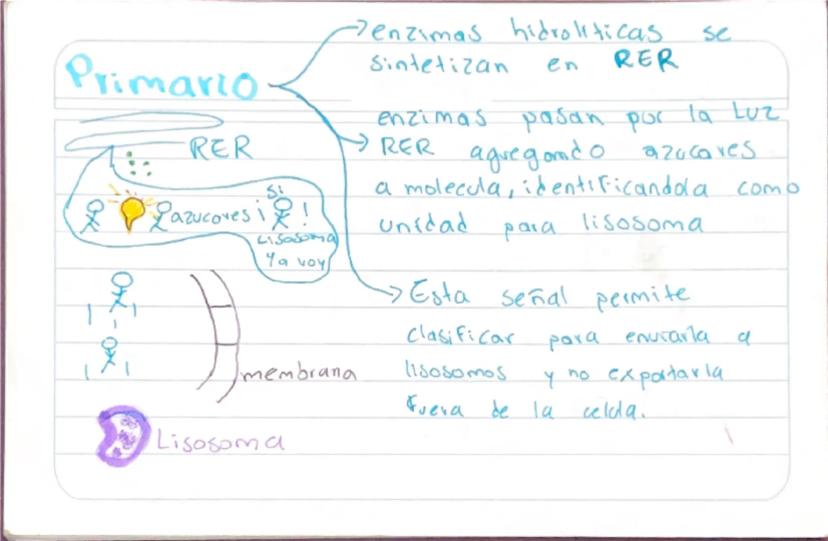 Primario
enzimas hidroliticas se
sintetizan en RER
enzimas pasan por la Luz
RER agregando azucares
a molecula, identificandola como
unidad para lisosoma
Esta señal permite
clasificar para enviarla a
lisosomas y no exportarla
fuera de la celda.
RER
azucares ¡ Si !
Lisosoma
Ya voy
membrana
Lisosoma